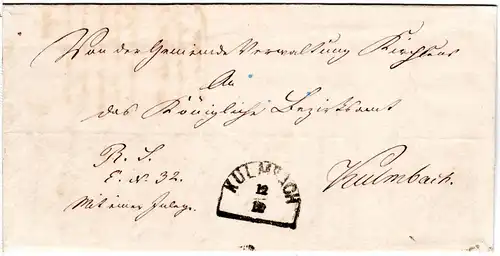 Von der Gemeinde Verwaltung
An
das Königliche Bezirksamt
R. S.
E. N. 32.
Mit einer Inlage.
Kulmbach.
KULMBACH
12
10